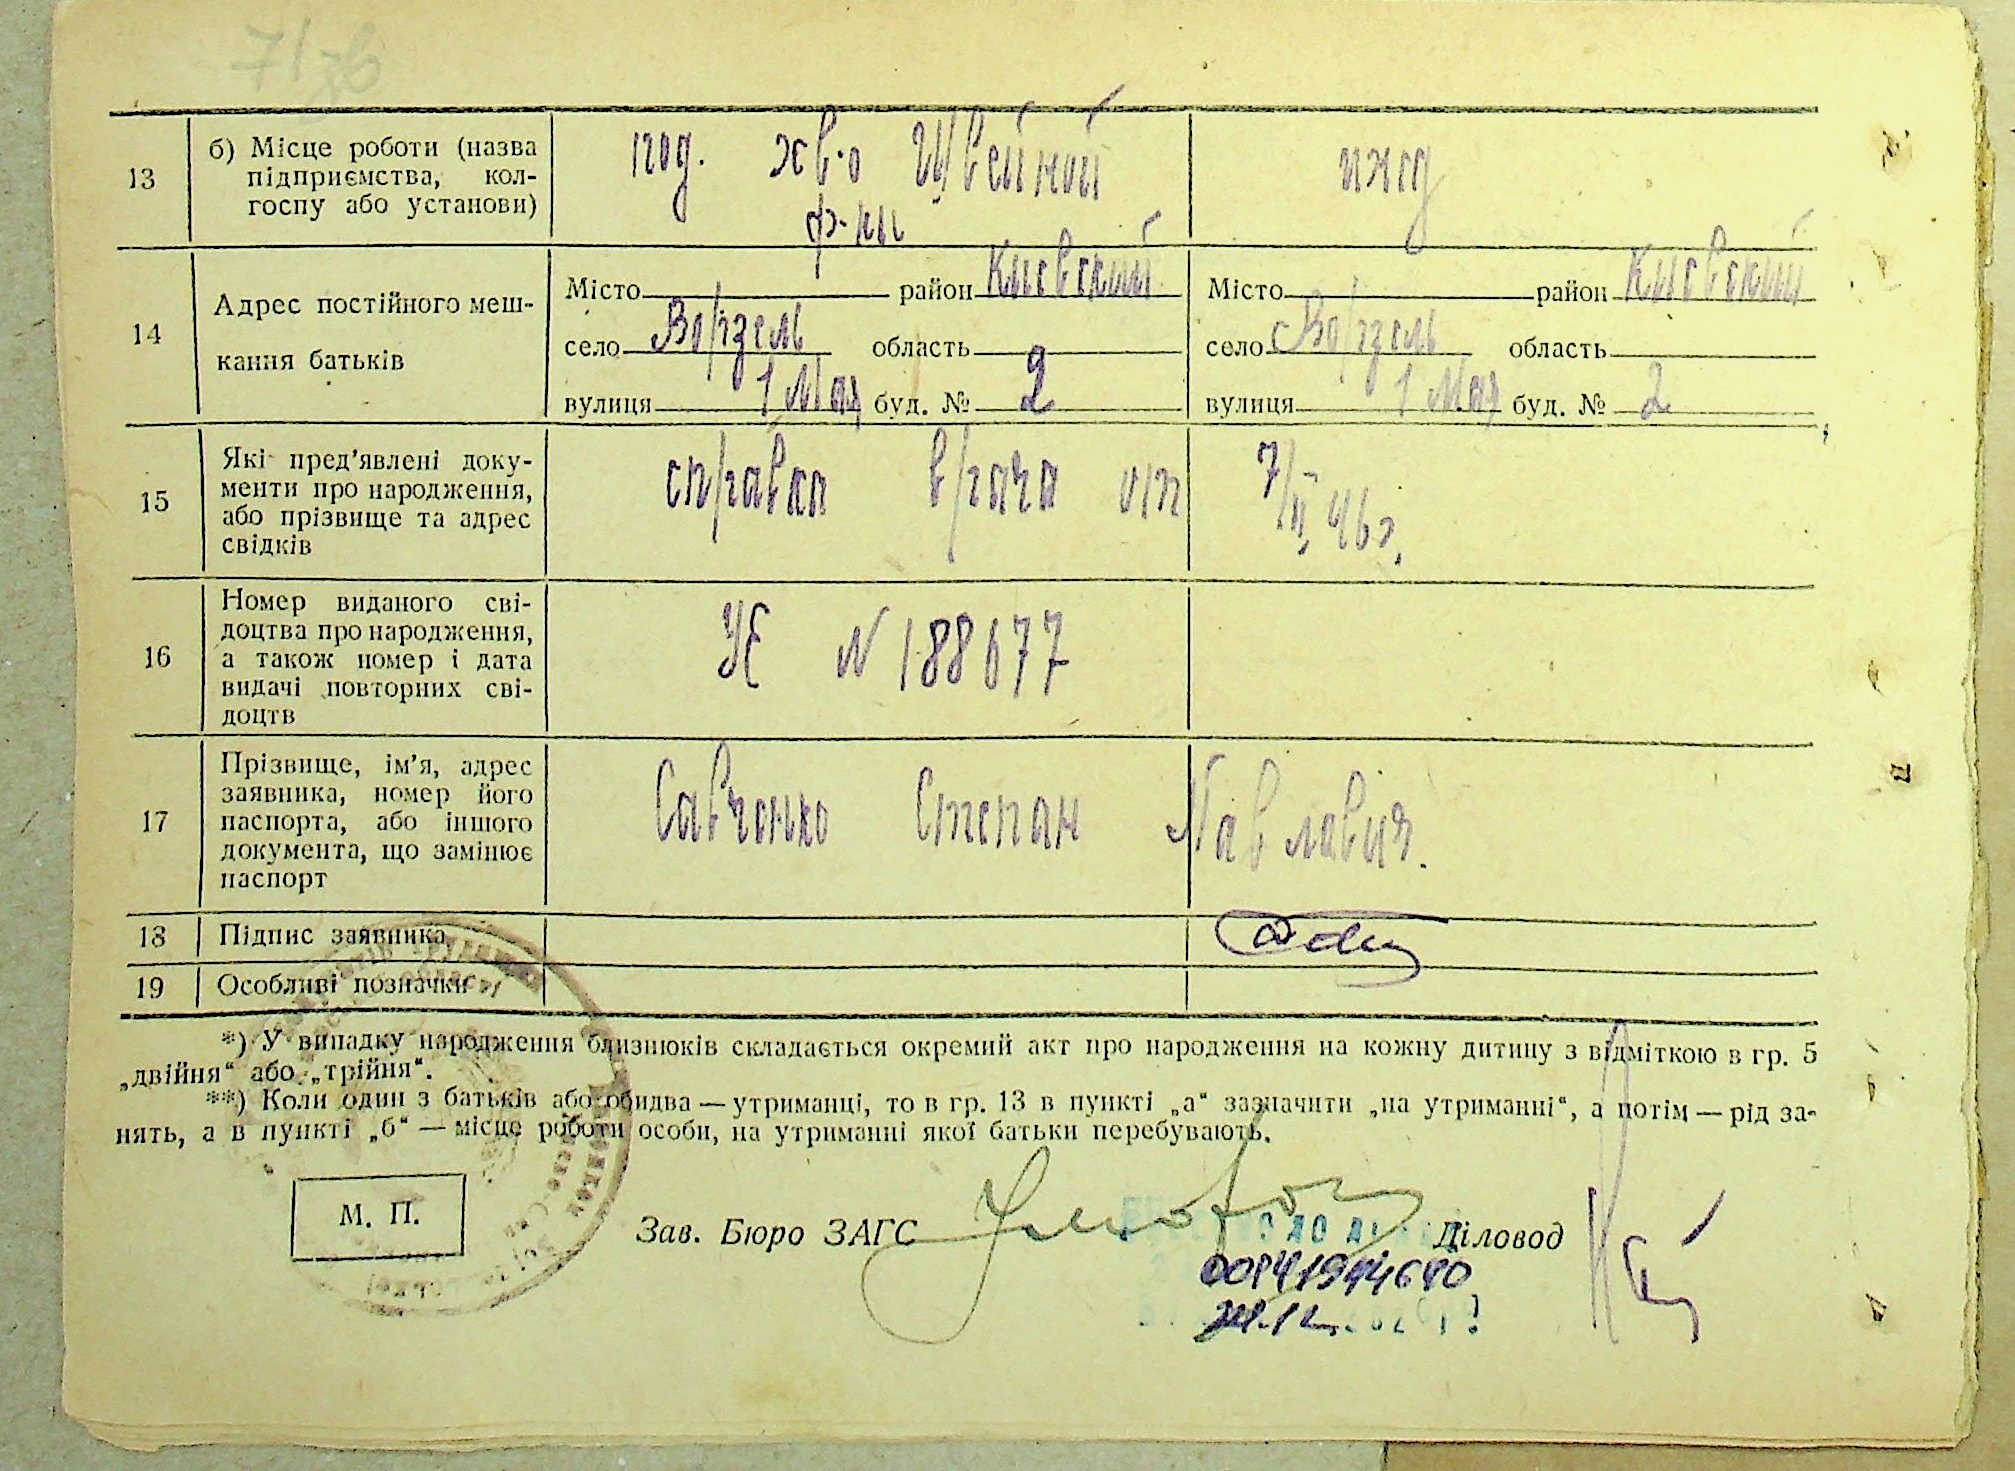 71 зв
13
б) Місце роботи (назва
підприємства, кол-
госпу або установи)
под. хв-о Швейной
ф-ки
ижд
14
Адрес постійного меш-
кання батьків
Місто район Киевский
село Ворзель область
вулиця 1 Мая буд. № 2
Місто район Киевский
село Ворзель область
вулиця 1 Мая буд. № 2
15
Які пред'явлені доку-
менти про народження,
або прізвище та адрес
свідків
справка врача от 7/II 46г.
16
Номер виданого сві-
доцтва про народження,
а також номер і дата
видачі повторних сві-
доцтв
УЕ N 188677
17
Прізвище, ім'я, адрес
заявника, номер його
паспорта, або іншого
документа, що замінює
паспорт
Савченко Степан Павлавич.
18
Підпис заявника
19
Особливі позначки
*) У випадку народження близнюків складається окремий акт про народження на кожну дитину з відміткою в гр. 5
„двійня“ або „трійня“.
**) Коли один з батьків або обидва — утриманці, то в гр. 13 в пункті „а“ зазначити „на утриманні“, а потім — рід за-
нять, а в пункті „б“ — місце роботи особи, на утриманні якої батьки перебувають.
М. П.
Зав. Бюро ЗАГС
Діловод